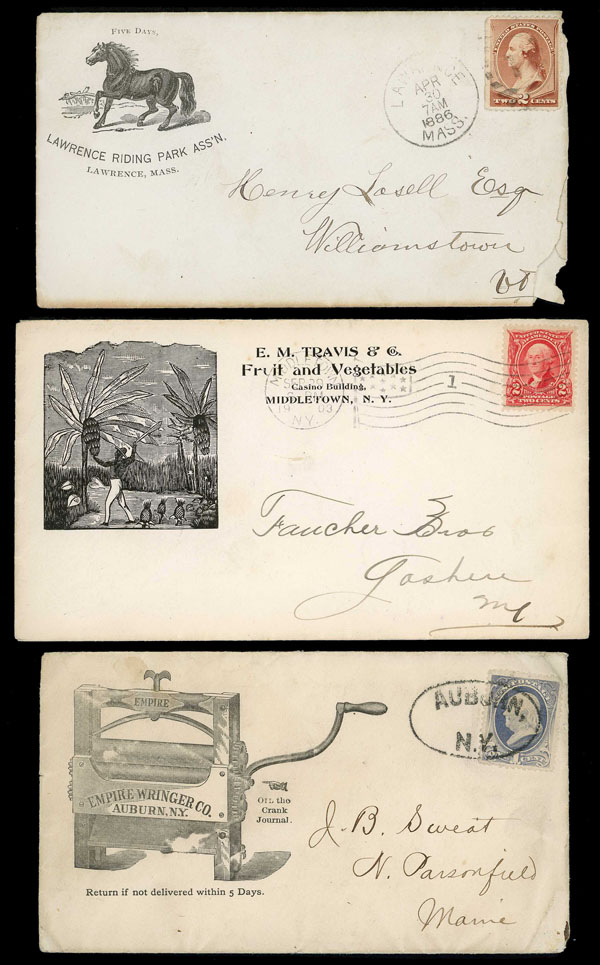 FIVE DAYS,
LAWRENCE RIDING PARK ASS'N.
LAWRENCE, MASS.
LAWRENCE
APR
30
7AM
1886
MASS.
UNITED STATES POSTAGE
TWO 2 CENTS
Henry Losell Esq
Williamstown
Vt
E. M. TRAVIS & Co.
Fruit and Vegetables
Casino Building,
MIDDLETOWN, N. Y.
SEP
19 03
N.Y.
1
2 2
POSTAGE
TWO CENTS
Faucher Bros
Goshen
NY
EMPIRE
EMPIRE WRINGER CO.
AUBURN, N.Y.
OIL the
Crank
Journal.
Return if not delivered within 5 Days.
AUBURN,
N.Y.
POSTAGE
J. B. Sweat
N. Parsonfield
Maine